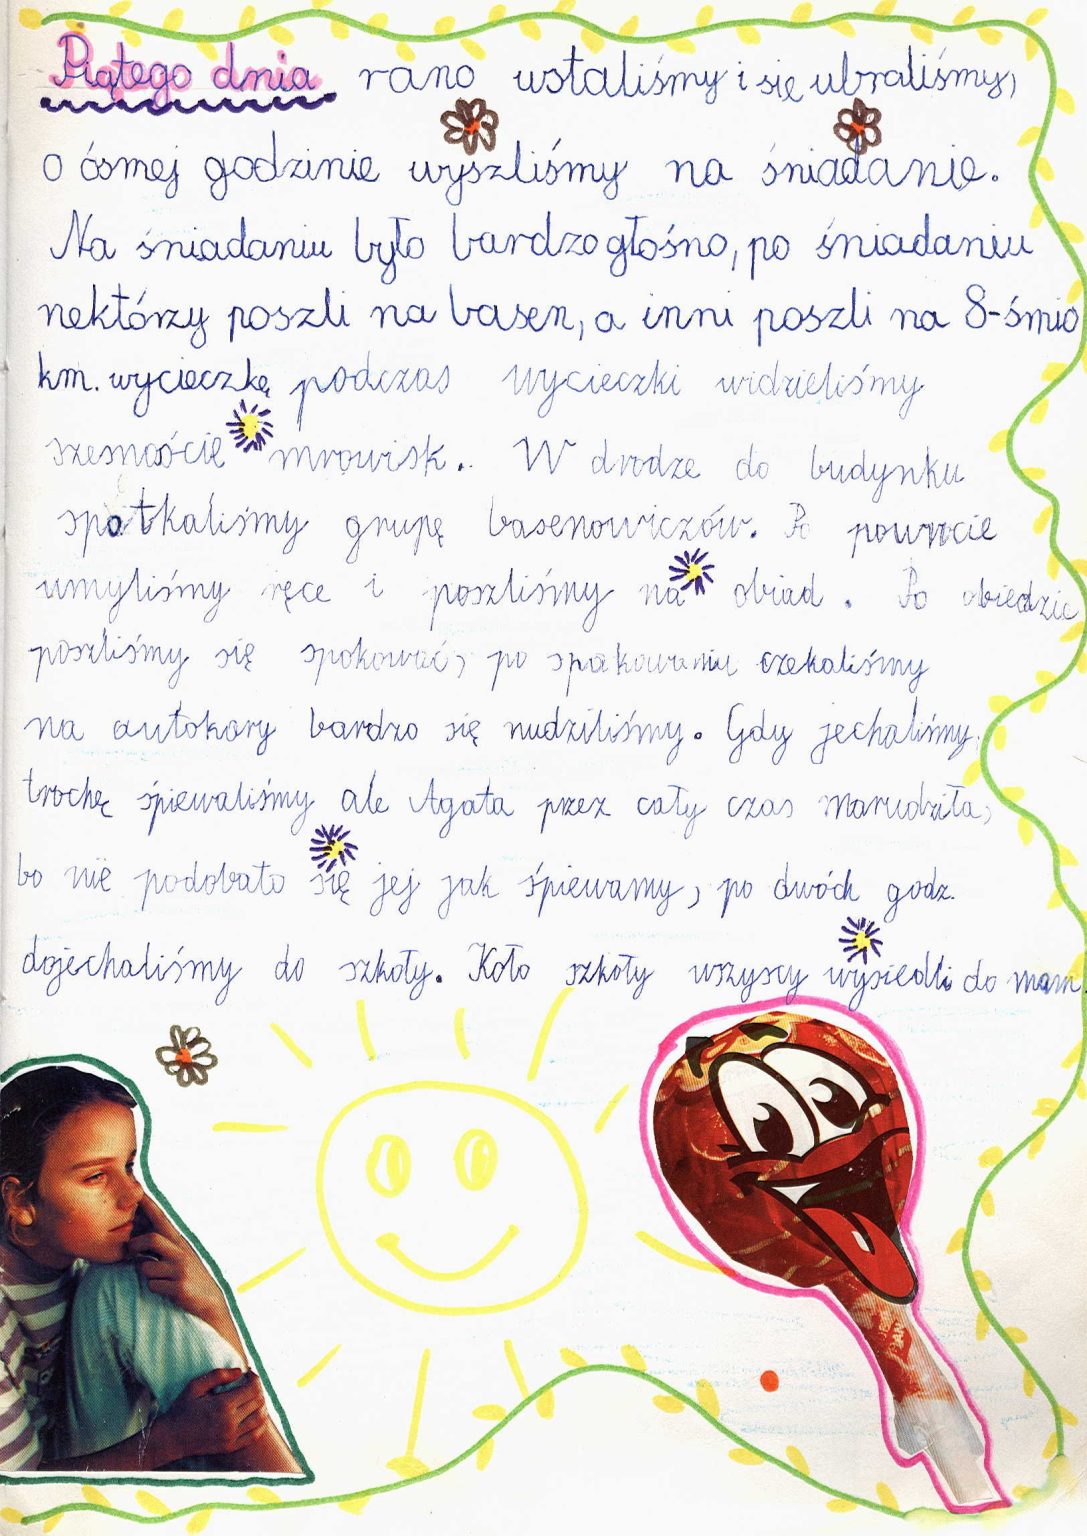 Piątego dnia rano wstaliśmy i się ubraliśmy,
o ósmej godzinie wyszliśmy na śniadanie.
Na śniadaniu było bardzo głośno, po śniadaniu
nektórzy poszli na basen, a inni poszli na 8-śmio
km. wycieczkę podczas wycieczki widzieliśmy
szesnaście mrowisk. W drodze do budynku
spotkaliśmy grupę basenowiczów. Po powrocie
umyliśmy ręce i poszliśmy na obiad. Po obiedzie
poszliśmy się spokować, po spakowaniu czekaliśmy
na autokary bardzo się nudziliśmy. Gdy jechaliśmy
trochę śpiewaliśmy ale Agata przez cały czas marudziła,
bo nie podobało się jej jak śpiewamy, po dwóch godz.
dojechaliśmy do szkoły. Koło szkoły wszyscy wysiedli do mam